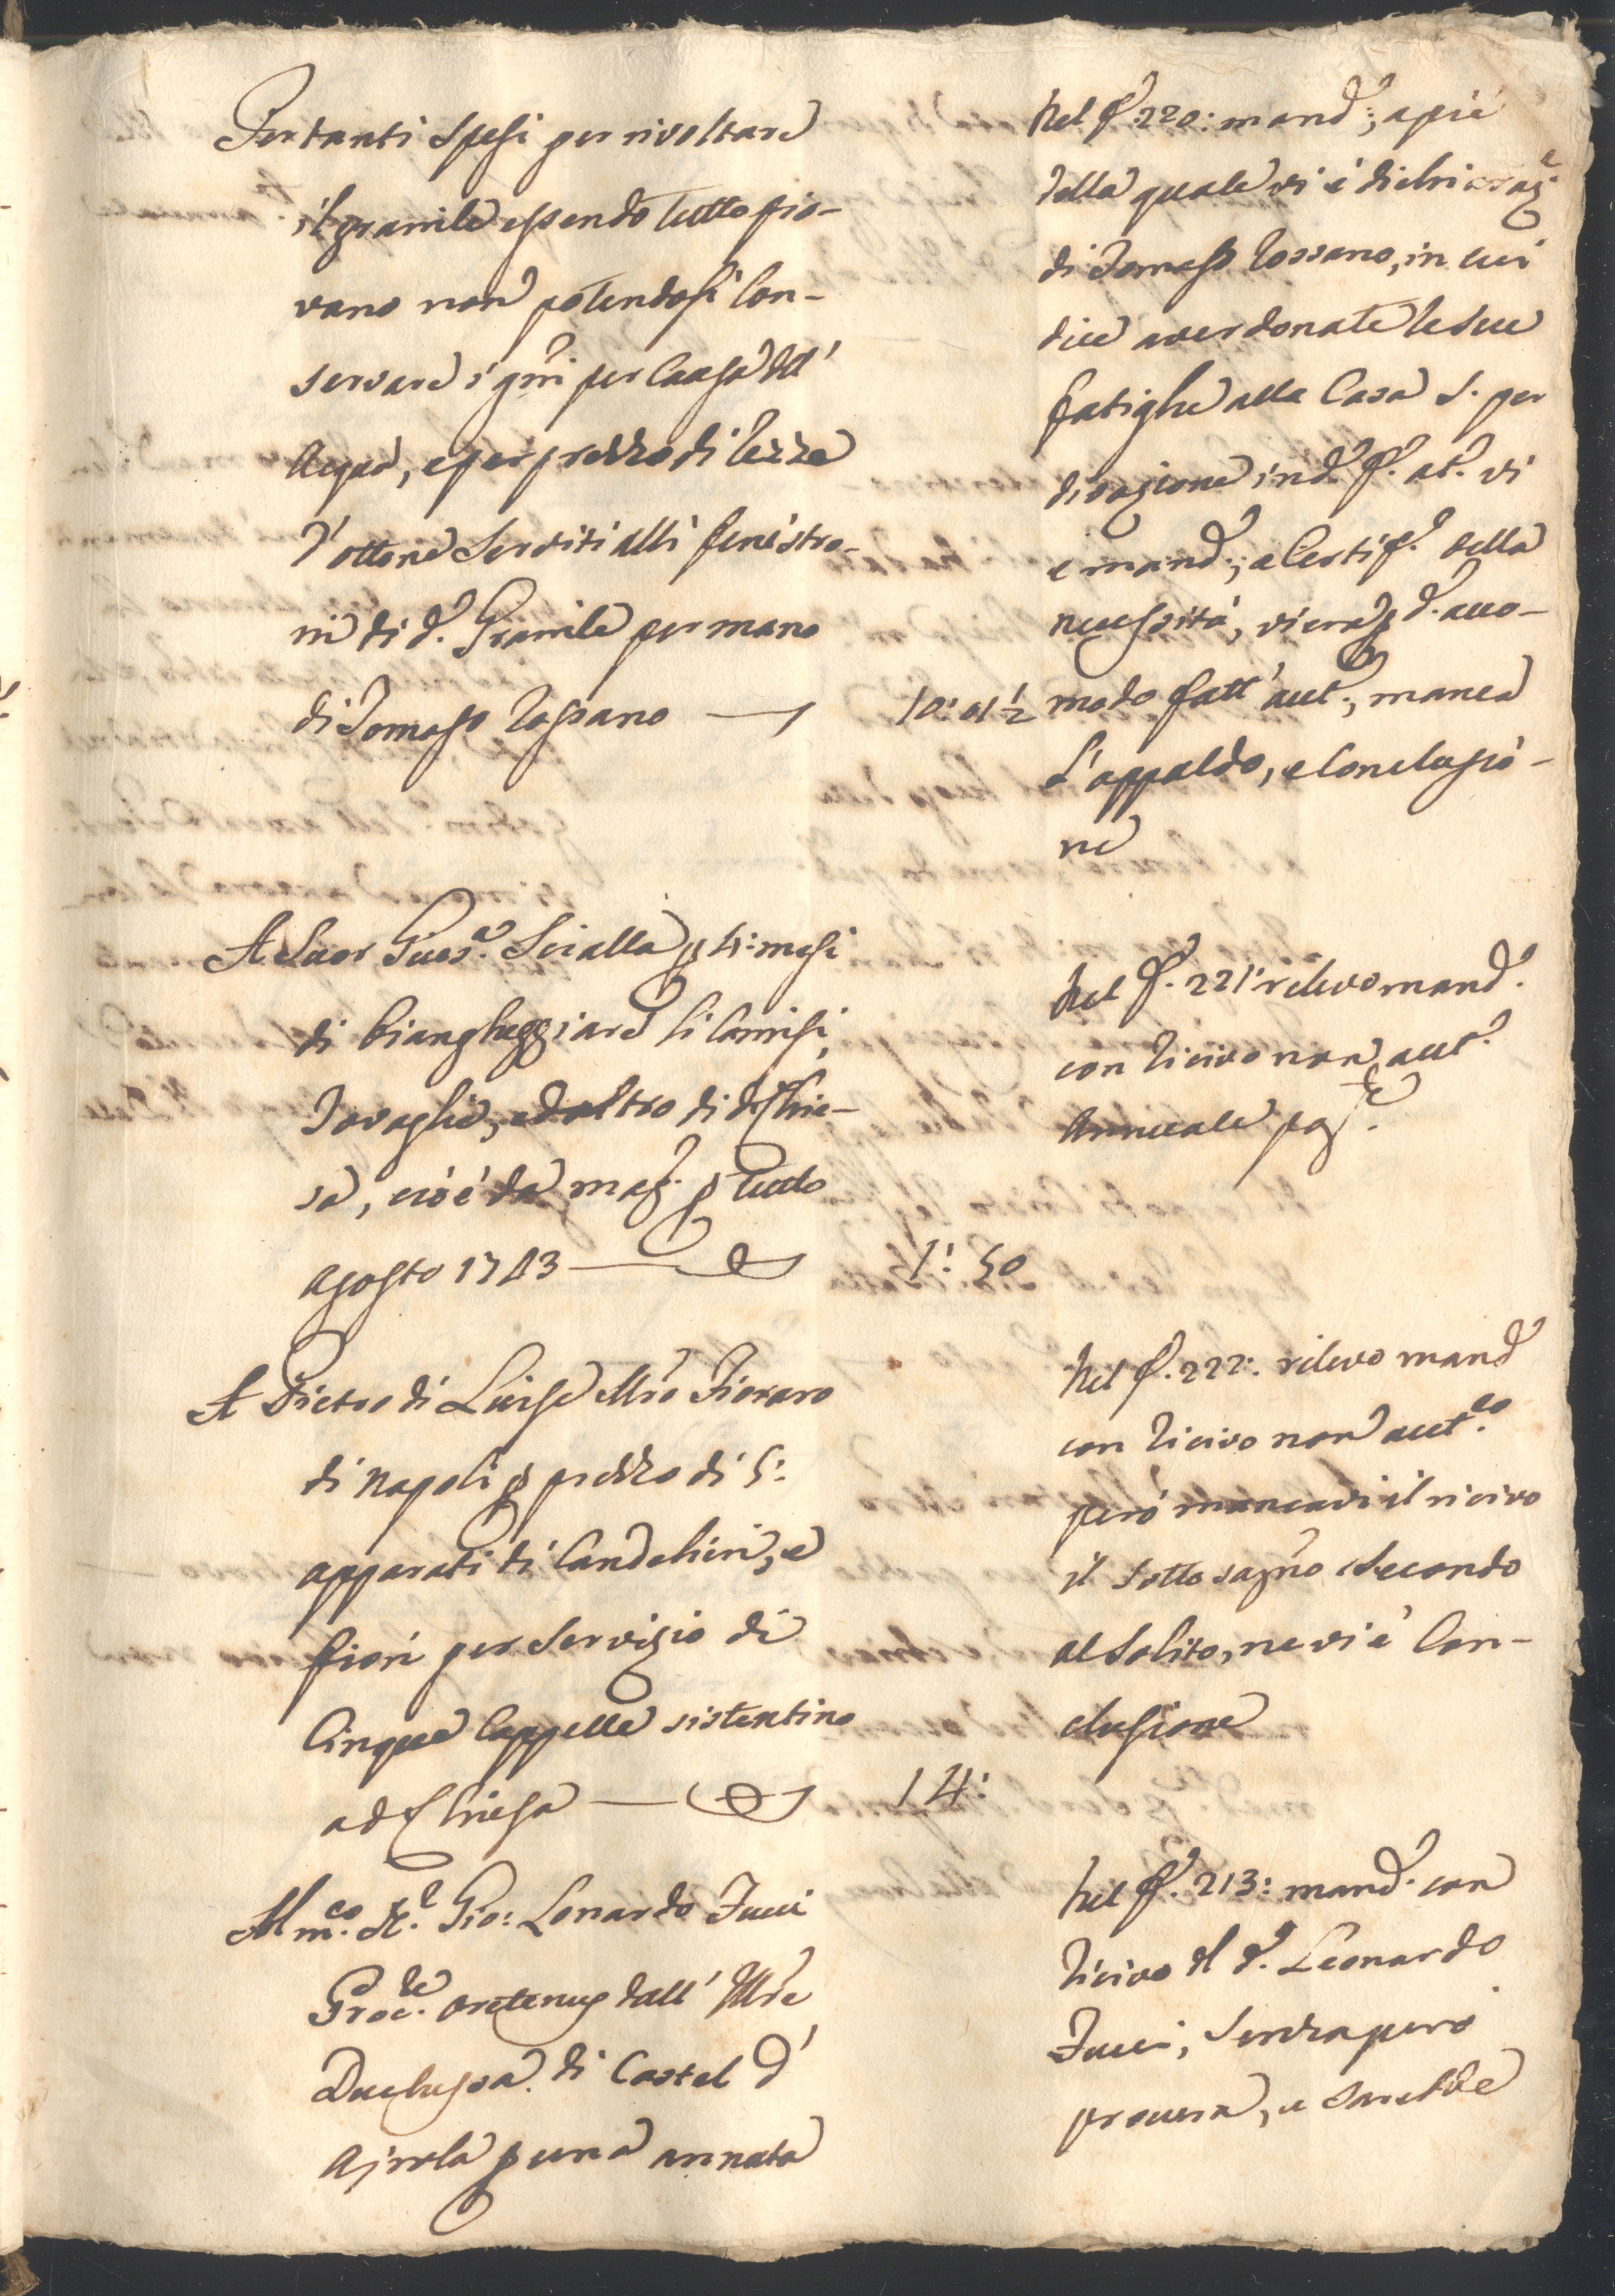 Per tanti spesi per rivoltare
il granile essendo tutto pio-
vano non potendosi con-
servare i gr̃ni per causa dell'
acqua, e per prezzo di pezze
d'ottone serviti alli fenestro-
ni di d.º Granile per mano
di Tomaso Rossano — 10: 01½
A Suor Gius.ª Scialla p 4: mesi
di biangheggiare li camisi,
tovaglie, ed altro di d.ª Chie-
sa, cioè da mag.º p tutto
agosto 1743 — 1: 50
A Pietro di Luise Mr̃o Fioraro
di Napoli p prezzo di 5:
apparati di Candelieri, e
fiori per servizio di
Cinque Cappelle sistentino
ad Chiesa — 14:
Al m.co N.r Gio: Lonardo Fucci
Proc.re oretenus dall' Ill̃re
Duchessa di Castel d'
Airola p una annata
Nel f.º 220: mand.º; a piè
della quale vi è dichiaraz.e
di Tomaso Rossano, in cui
dice aver donate le sue
fatighe alla Casa S. per
divozione in d.º f.º at.º vi
è mand.º; e Certif.º della
necessità, viene p d.º acco-
modo fatt' aut.; manca
l'appaldo, e Conclusio-
ne
Nel f.º 221: rilevo mand.º
con ricivo non aut.º
Annuale pag.to
Nel f.º 222: rilevo mand.º
con ricivo non aut.co
però mancavi il ricivo
il sotto sagño secondo
al solito, ne vi è Con-
clusione
Nel f.º 213: mand.º con
ricivo di d.º Leonardo
Fucci, senza però
procura, e sarebbe